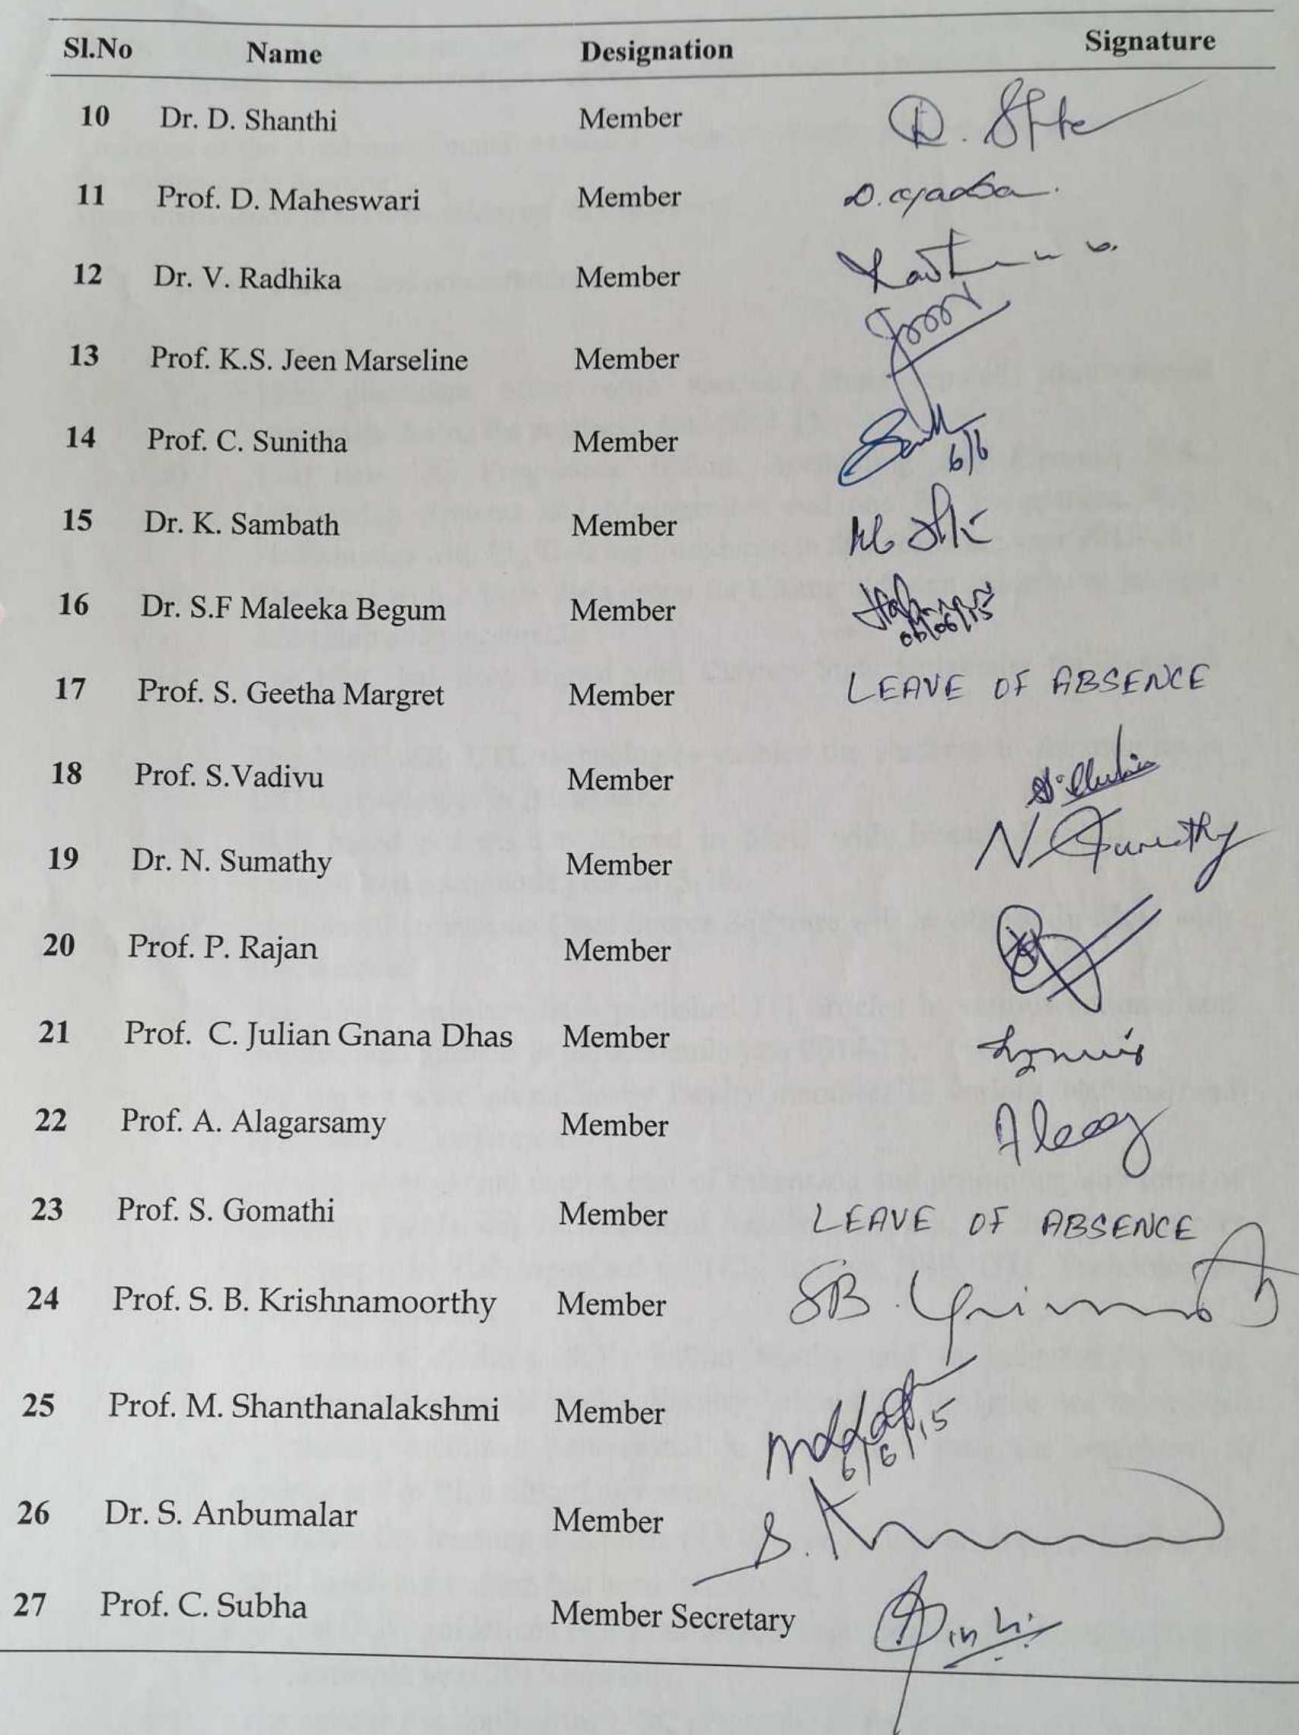 Sl.No Name Designation Signature
10 Dr. D. Shanthi Member
11 Prof. D. Maheswari Member
12 Dr. V. Radhika Member
13 Prof. K.S. Jeen Marseline Member
14 Prof. C. Sunitha Member 6/6
15 Dr. K. Sambath Member
16 Dr. S.F Maleeka Begum Member 06/06/15
17 Prof. S. Geetha Margret Member LEAVE OF ABSENCE
18 Prof. S.Vadivu Member
19 Dr. N. Sumathy Member N Sumathy
20 Prof. P. Rajan Member
21 Prof. C. Julian Gnana Dhas Member
22 Prof. A. Alagarsamy Member
23 Prof. S. Gomathi Member LEAVE OF ABSENCE
24 Prof. S. B. Krishnamoorthy Member SB
25 Prof. M. Shanthanalakshmi Member 6/6/15
26 Dr. S. Anbumalar Member S.
27 Prof. C. Subha Member Secretary